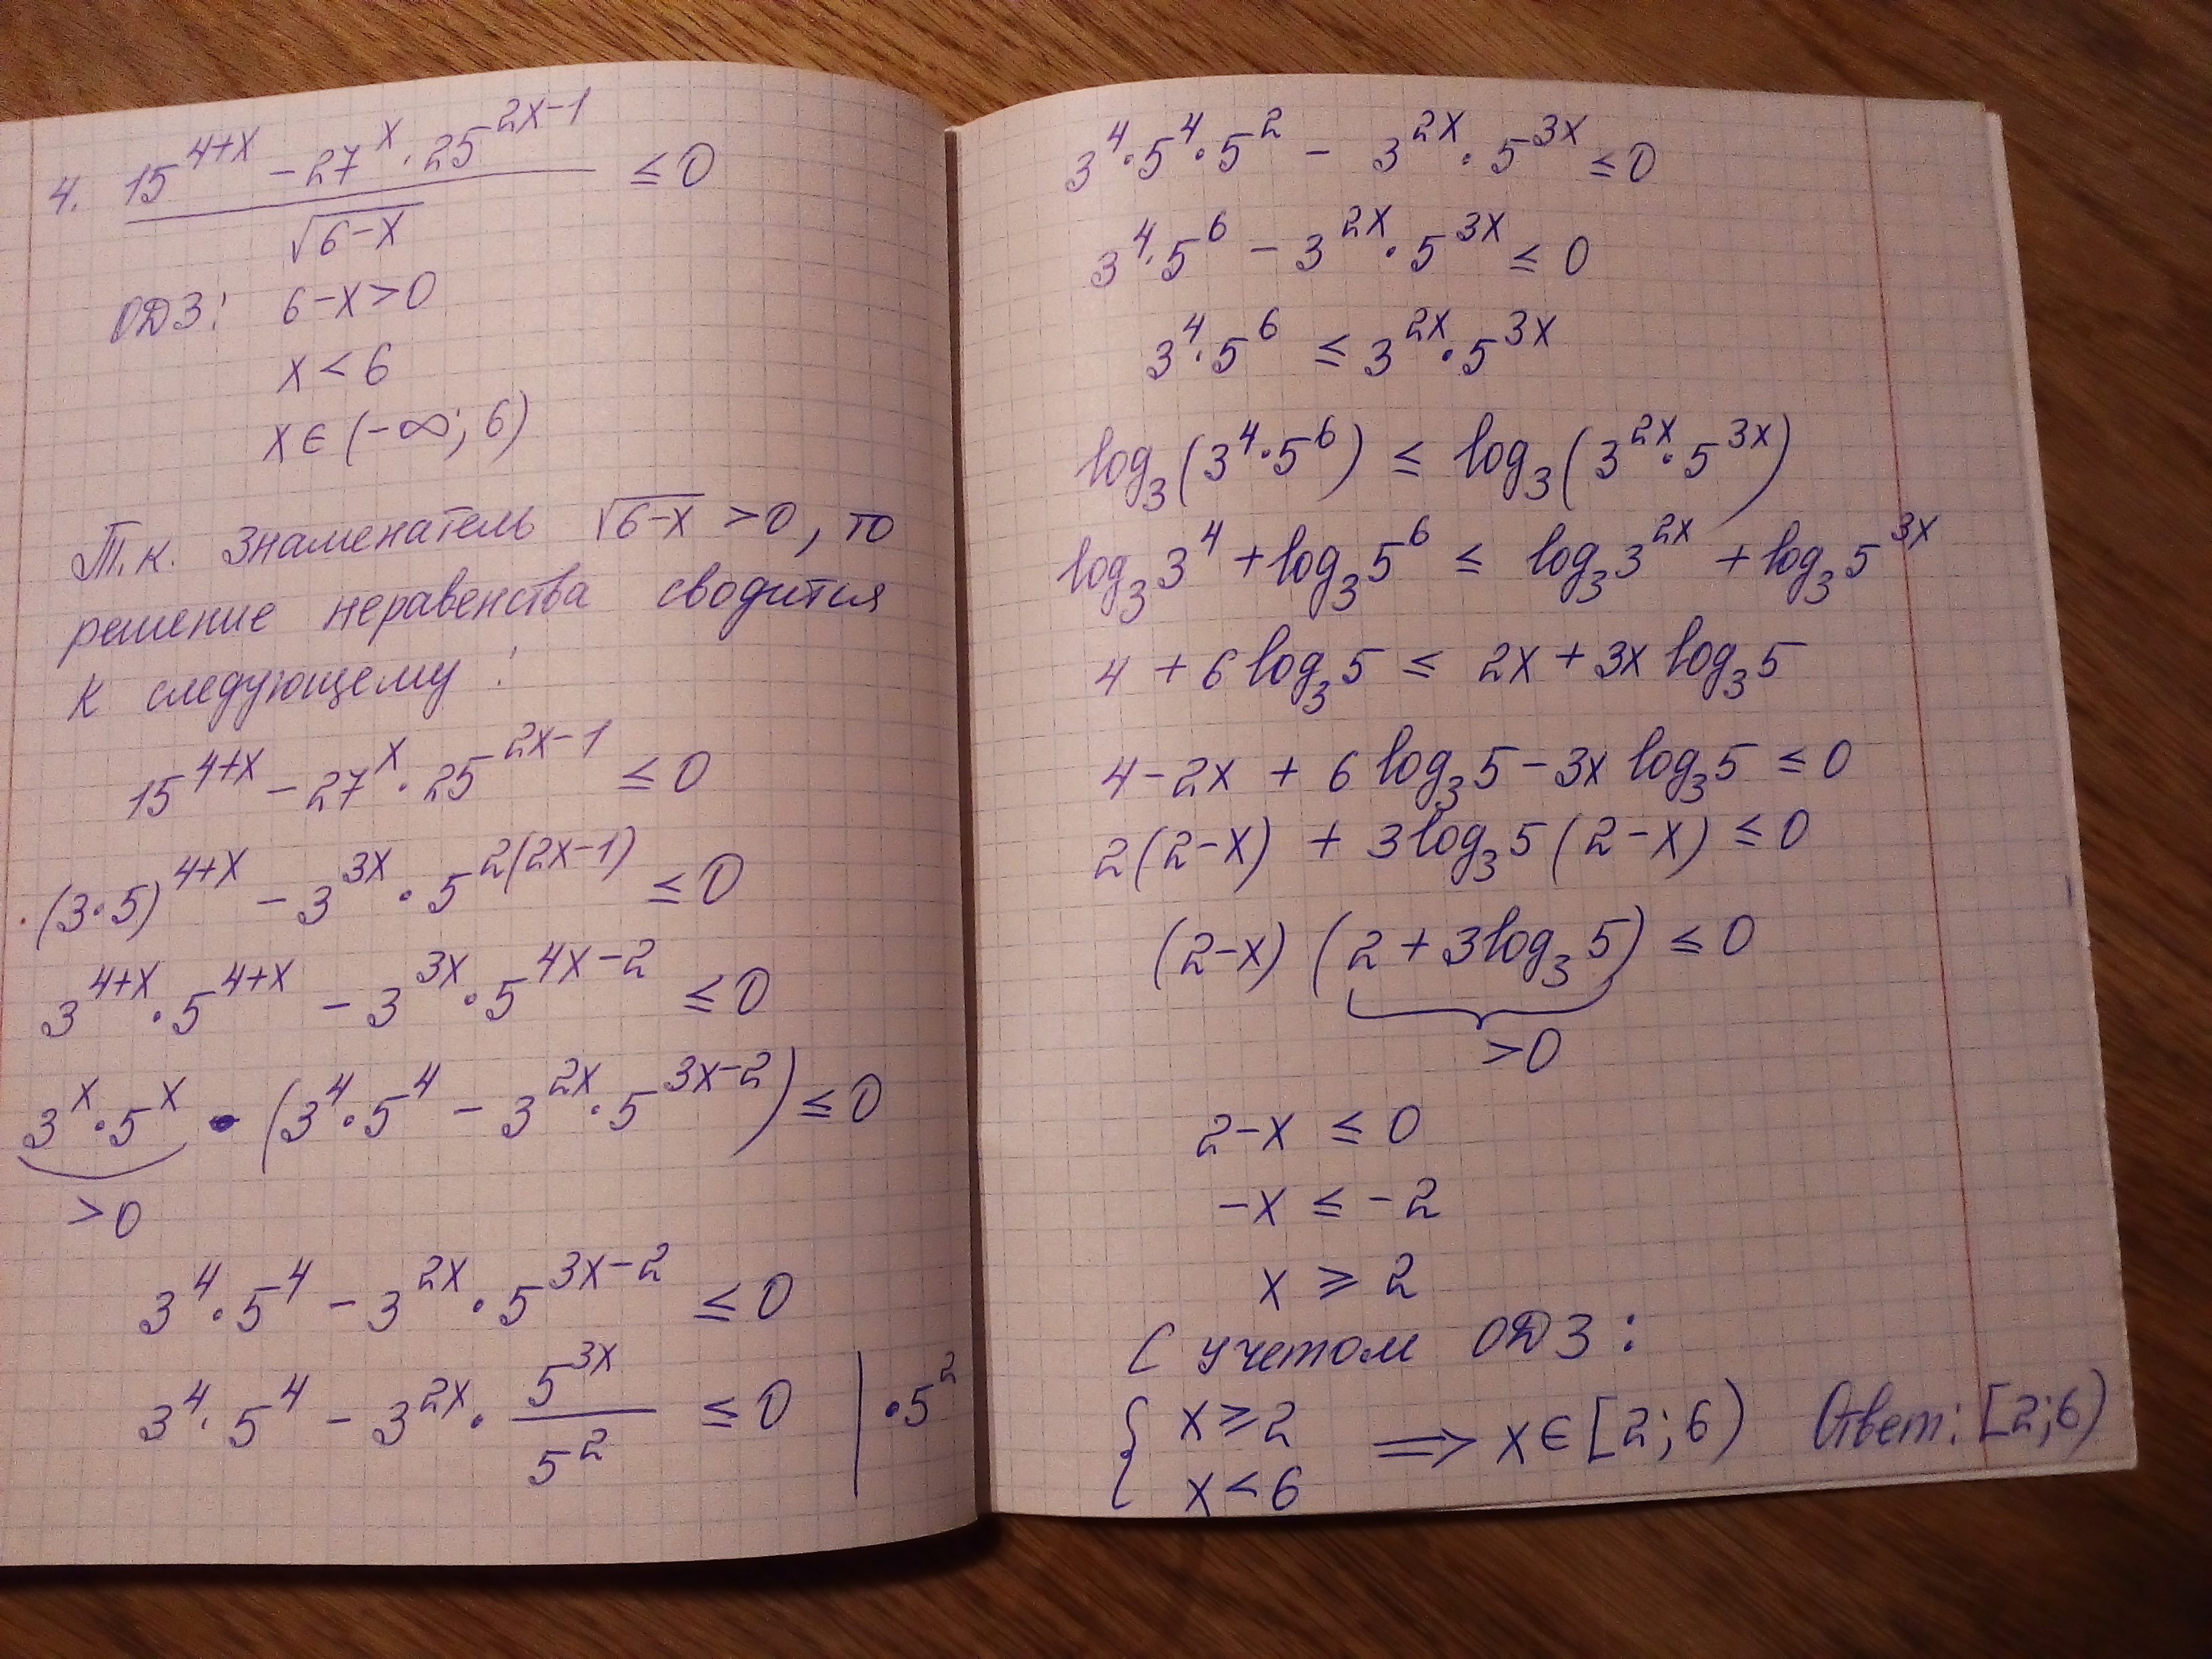 4. (15^(4+x) − 27^x · 25^(2x−1)) / √(6−x) ≤ 0
ОДЗ: 6−x > 0
x < 6
x ∈ (−∞; 6)
Т.к. знаменатель √(6−x) > 0, то
решение неравенства сводится
к следующему:
15^(4+x) − 27^x · 25^(2x−1) ≤ 0
(3·5)^(4+x) − 3^(3x) · 5^(2(2x−1)) ≤ 0
3^(4+x) · 5^(4+x) − 3^(3x) · 5^(4x−2) ≤ 0
3^x · 5^x · (3^4 · 5^4 − 3^(2x) · 5^(3x−2)) ≤ 0
> 0
3^4 · 5^4 − 3^(2x) · 5^(3x−2) ≤ 0
3^4 · 5^4 − 3^(2x) · 5^(3x)/5^2 ≤ 0 | · 5^2
3^4 · 5^4 · 5^2 − 3^(2x) · 5^(3x) ≤ 0
3^4 · 5^6 − 3^(2x) · 5^(3x) ≤ 0
3^4 · 5^6 ≤ 3^(2x) · 5^(3x)
log₃(3^4 · 5^6) ≤ log₃(3^(2x) · 5^(3x))
log₃3^4 + log₃5^6 ≤ log₃3^(2x) + log₃5^(3x)
4 + 6 log₃5 ≤ 2x + 3x log₃5
4 − 2x + 6 log₃5 − 3x log₃5 ≤ 0
2(2−x) + 3log₃5 (2−x) ≤ 0
(2−x) (2 + 3log₃5) ≤ 0
> 0
2−x ≤ 0
−x ≤ −2
x ⩾ 2
С учетом ОДЗ:
{ x ⩾ 2
x < 6 ⟹ x ∈ [2; 6) Ответ: [2; 6)